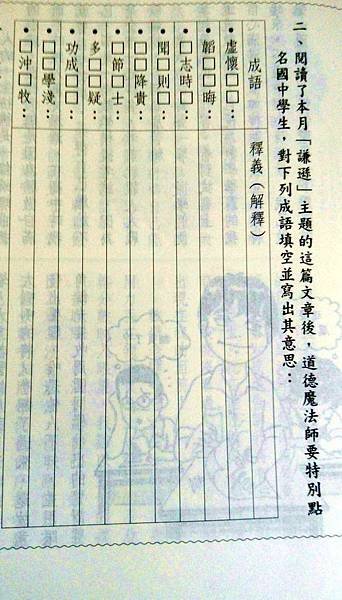 二、閱讀了本月「謙遜」主題的這篇文章後，道德魔法師要特別點
名國中學生，對下列成語填空並寫出其意思：
成語 釋義（解釋）
•虛懷□□：
•韜□□晦：
•□志時□：
•聞□則□：
•□□降貴：
•□節□士：
•多□□疑：
•功成□□：
•□□學淺：
•□沖□牧：